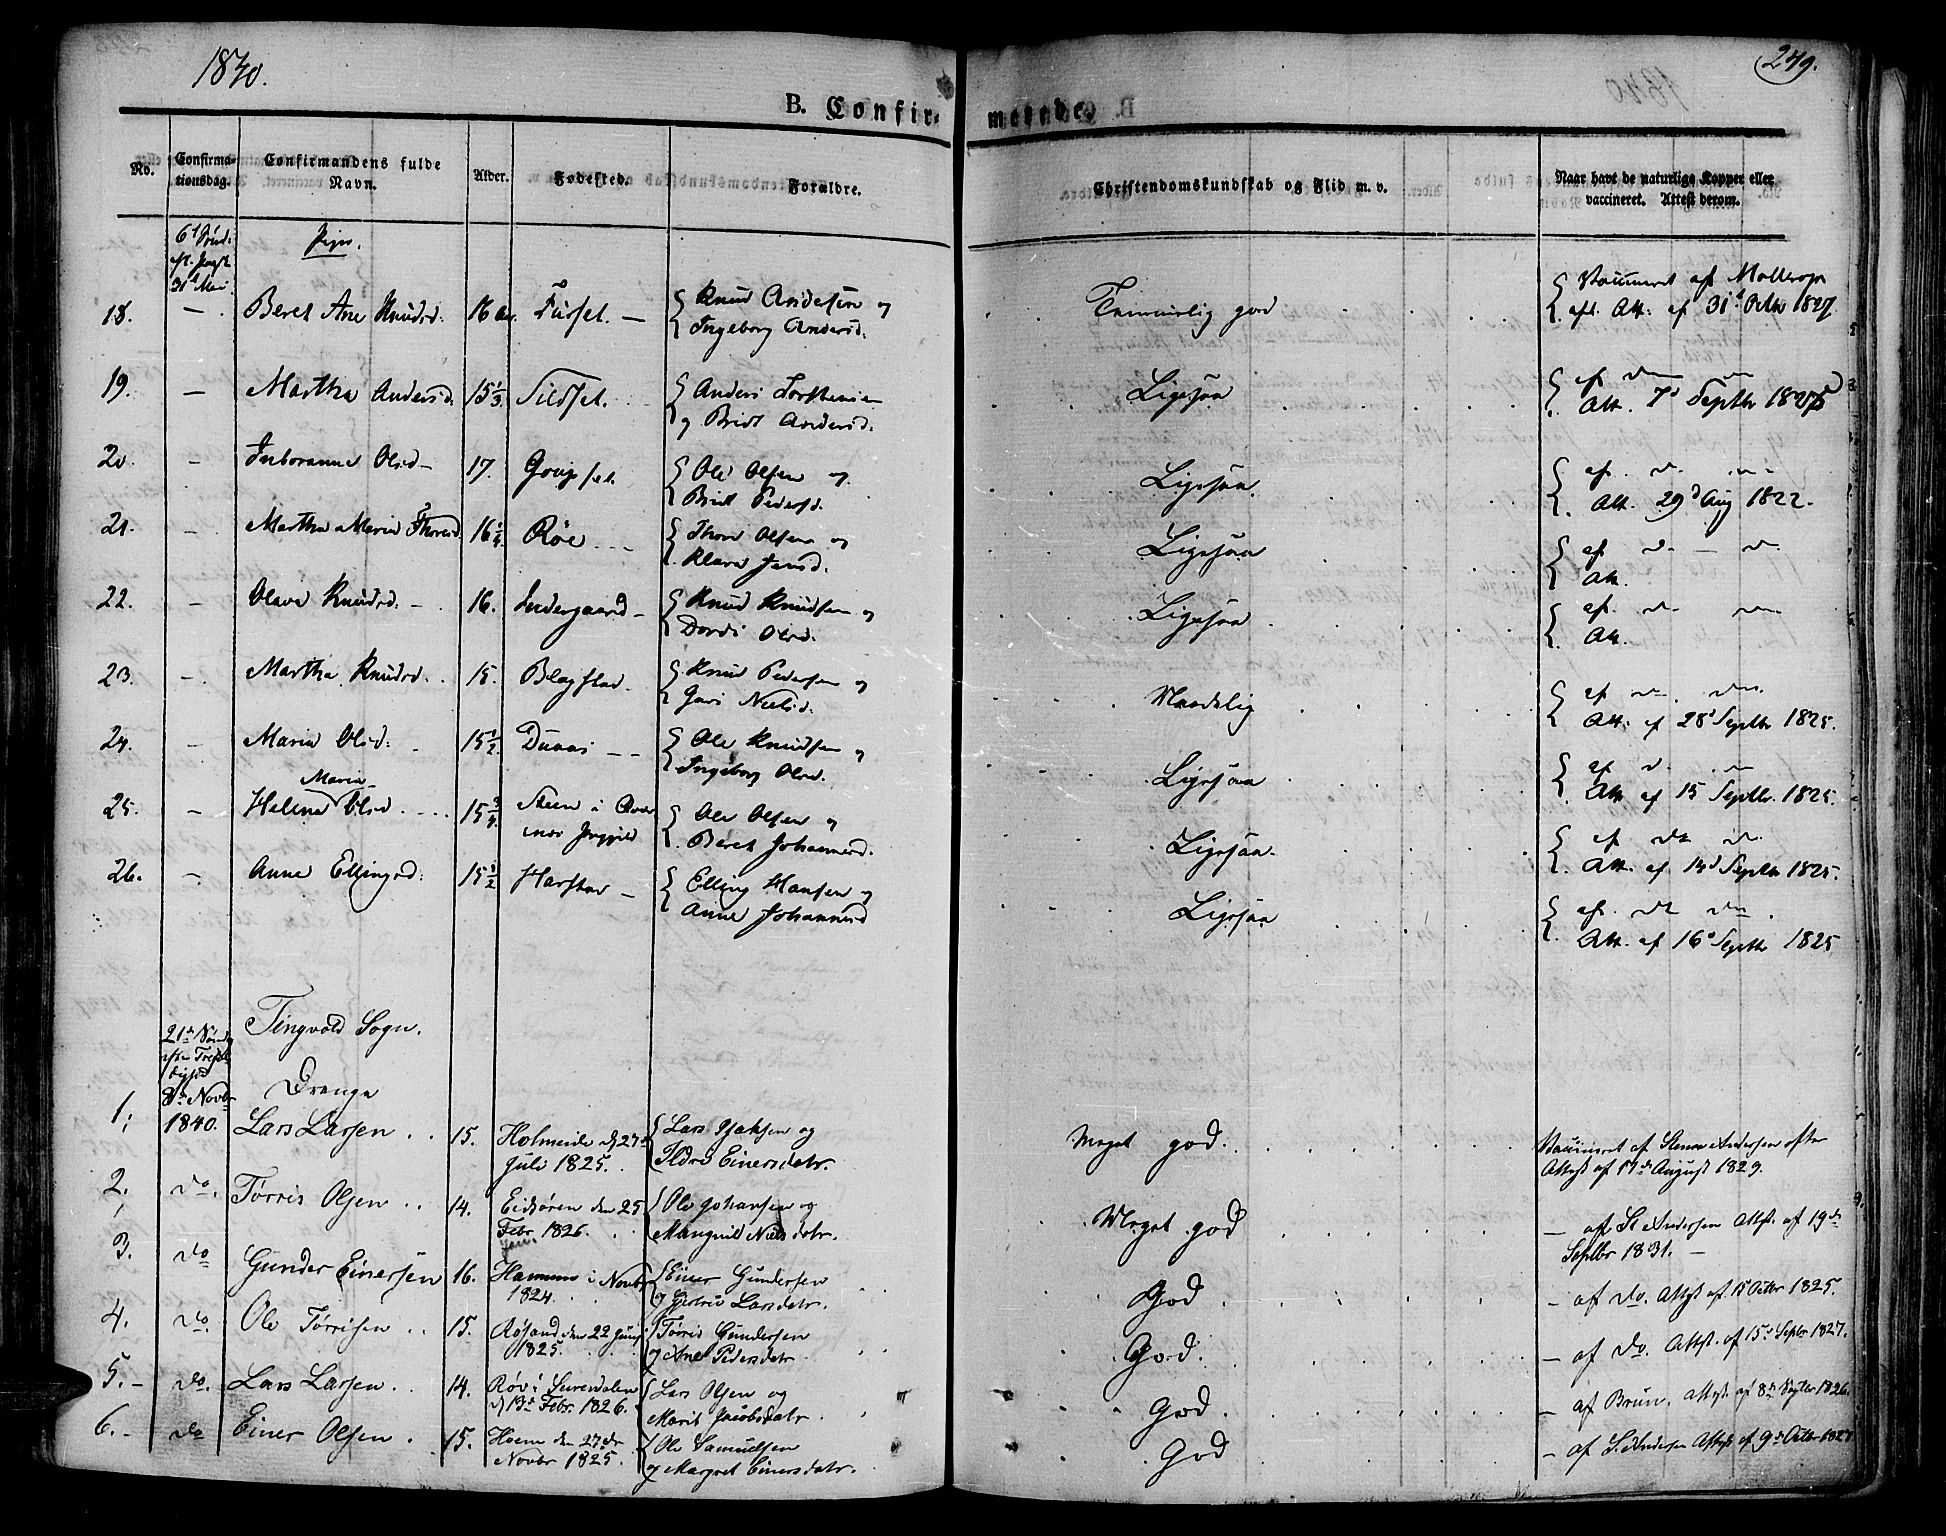 1840.
249.
B. Confir-
merede.
No.
Confirma-
tionsdag.
Confirmandens fulde
Navn.
Alder.
Fødested.
Forældre.
Christendomskundskab og Flid m. v.
Naar havt de naturlige Kopper eller
vaccineret. Attest derom.
31 Mai
18. Beret Ane Knudsd. 16 Furset. Knud Andersen og
Ingeborg Andersd.
god
Vaccineret af
Att. af 31 Octbr 1827.
19. Martha Andersd. 15 1/3 Sildset. Anders Torstensen
og Bridt Andersd.
Ligesaa
Att. 7d Septbr
20. Olsd 17. Ole Olsen og
Bridt Pedersd.
Ligesaa
af
Att. 29d Aug 1822.
21. Martha Maria Thoresd 16 1/4 Røe Thore Olsen og
Klara Jensd.
Ligesaa
af
Att.
22. Olava Knudsd. 16. Indergaard Knud Knudsen og
Dordi Olsd.
Ligesaa
af
Att.
23. Martha Knudsd. 15. Blegstad Knud Pedersen og
Guri Nielsd.
Maadelig
af
Att. af 28d Septbr 1825.
24. Maria Olsd. 15 1/2 Ole Knudsen og
Ingeborg Olsd.
Ligesaa
af
Att. af 15 Septbr. 1825.
Maria
25. Helena Olsd 15 3/4 Steen i Ole Olsen og
Beret Johannesd.
Ligesaa.
af
Att. af Septbr 1825.
26. Anne Ellingsd. 15 1/2 Harstad Elling Hansen og
Anne Johannesd
Ligesaa
af
Att. af 16d Septbr 1825
Tingvold Sogn.
21de Sønd
efter Trefol-
dighed
8de Novbr
1840.
Drenge
1, Lars Larsen 15. Holmeide d 27de
Juli 1825. Lars Isaksen og
Ildri Einersdatr.
Meget god.
Vaccineret af Andersen efter
Attest af 17de August 1829.
2, do. Tørris Olsen 14. Eidsøren den 25
Febr. 1826. Ole Johansen og
Mangnild Nielsdatr.
Meget god
af St. Andersen Attst. af 19de
Septbr 1831.
3. do Gunder Einersen 16. Hammen i Novbr
1824. Einer Gundersen
og Gjertrud Larsdatr.
God
af do. Attst af 15 Octbr 1825.
4. do. Ole Tørrisen 15. Røsand den 22 Juni
1825. Tørris Gundersen
og Ane Pedersdatr.
God.
af do. Attst. af 15d Septbr 1827.
5. do. Lars Larsen 14. Røv i Surendalen
d 13d Febr. 1826. Lars Olsen og
Marit Jacobsdatr.
God.
af Brun. Attst. af 8de Septbr 1826.
6. do Einer Olsen 15. Hoem den 27de
Novbr 1825. Ole Samuelsen
og Margret Einersdatr.
God
af St. Andersen Attst af 9de Octbr